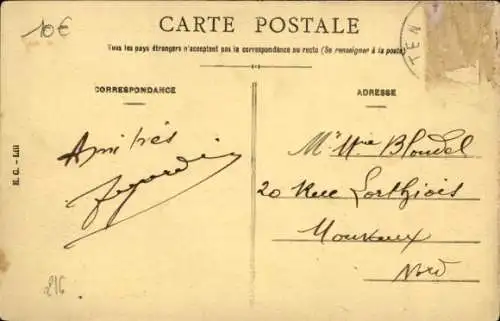 10€
CARTE POSTALE
Tous les pays étrangers n'acceptent pas la correspondance au recto (Se renseigner à la poste)
TEN
CORRESPONDANCE
ADRESSE
Amitiés
Mr Blondel
20 Rue
Mouvaux
Nord
B. C. - Lill
216